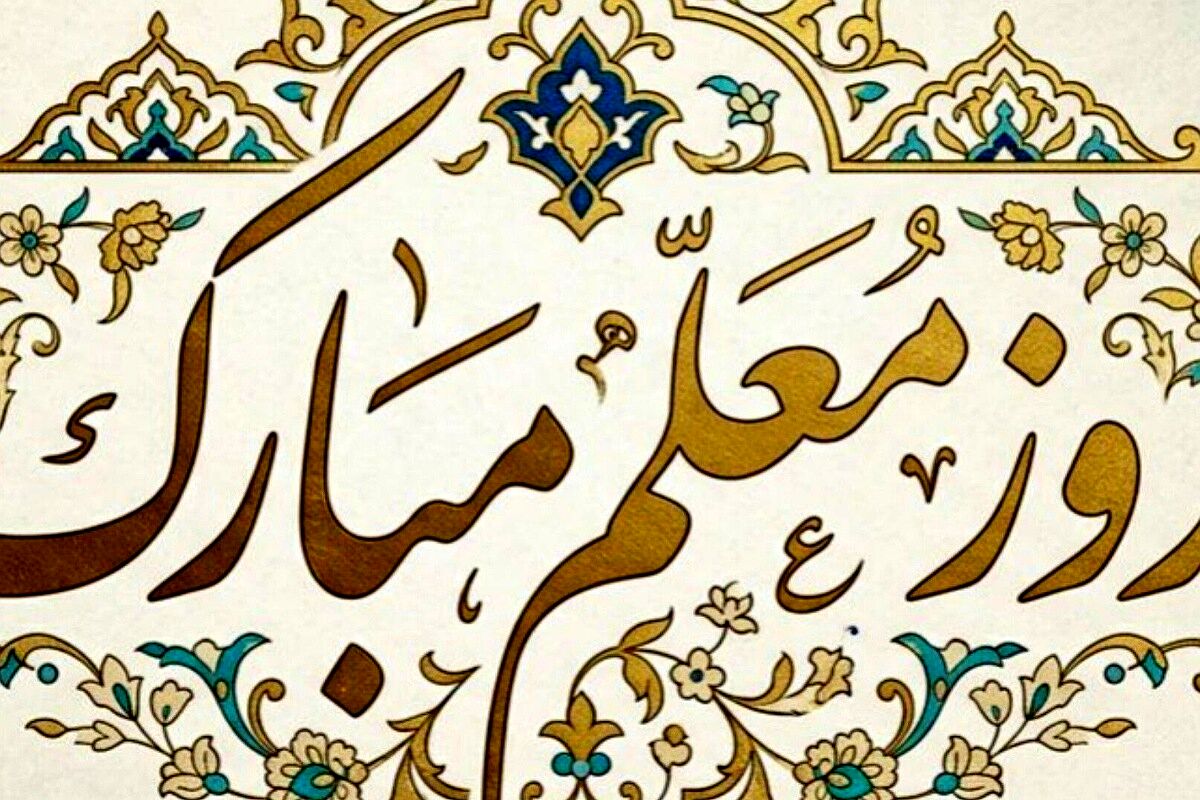 روز مُعَلّم مبارک